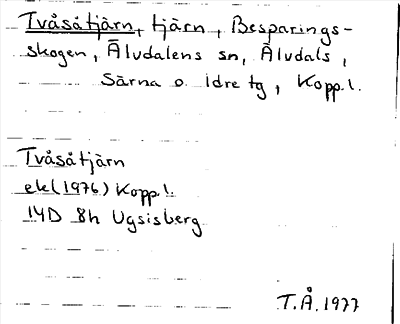 Tvåsåtjärn, tjärn, Besparings-
skogen, Älvdalens sn, Älvdals,
Särna o. Idre tg, Kopp.l.
Tvåsåtjärn
ek(1976) Kopp.l.
14D 8h Ugsisberg
T.Å.1977